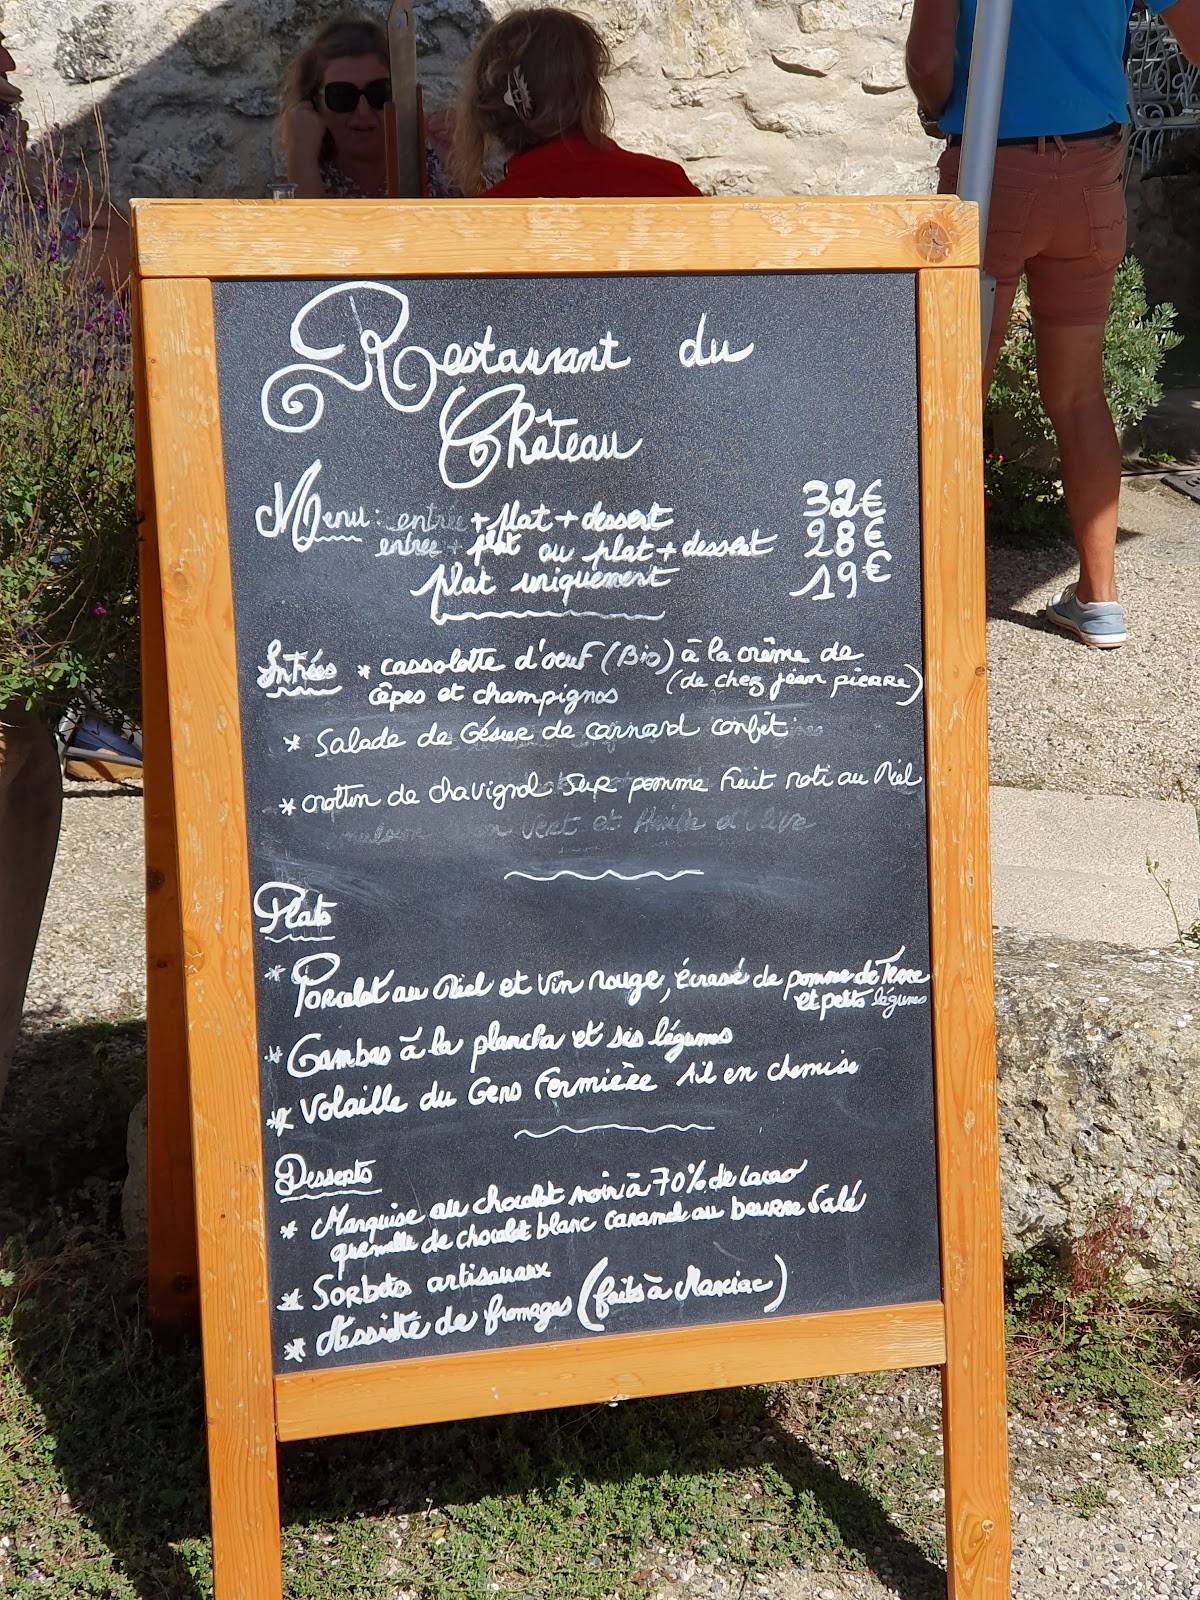 Restaurant du
Château
Menu : entrée + plat + dessert 32€
entrée + plat ou plat + dessert 28€
plat uniquement 19€
Entrées * cassolette d'oeuf (Bio) à la crème de
cêpes et champignos (de chez jean pierre)
* Salade de Gésier de carnard confit
* crottin de chavignol sur pomme fruit roti au Miel
vert et Huile d'olive
Plats
* Porcelet au Miel et vin rouge, écrasé de pomme de Terre
et petits légumes
* Gambas à la plancha et ses légumes
* Volaille du Gers Fermière Ail en chemise
Desserts
* Marquise au chocolat noir à 70% de cacao
quenelle de chocolat blanc caramel au beurre salé
* Sorbets artisanaux
* Assiette de fromages (faits à Marciac)